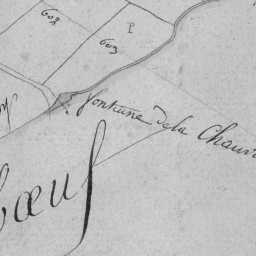 608
P
603
fontaine de la Chauv
bœuf